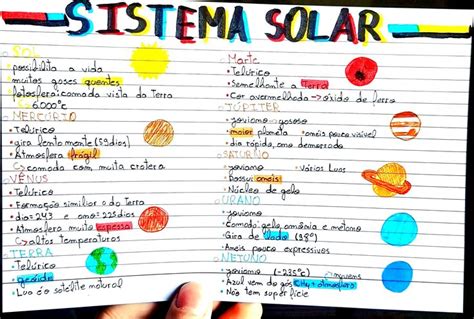 SISTEMA SOLAR
SOL
• possibilita a vida
• muitos gases quentes
• fotosfera: camada vista da Terra
↳ 6.000°c
MERCÚRIO
• Telúrico
• gira lentamente (59 dias)
• Atmosfera frágil
↳ camada com muita cratera
VÊNUS
• Telúrico
• Formação similiar o do Terra
• dia: 243 e ano: 225 dias
• Atmosfera muita espessa
↳ altas temperaturas
TERRA
• Telúrico
• geóide
• Lua é o satélite natural
Marte
• Telúrico
• Semelhante a Terra
• Cor avermelhada → óxido de ferro
JÚPITER
• joviano → gasoso
• maior planeta • aneis pouca visível
• dia rápido, ano demorado
SATURNO
• joviano • vários Luas
• Possui aneis
• Núcleo de gelo
URANO
• joviano
• Comado: gelo, amônia e metano
• Gira de lado (98°)
• Aneis pouco expressivos
NETUNO
• joviano (-235°c) nuvens
• Azul vem do gás CH4 + atmosfera
• Não tem superfície